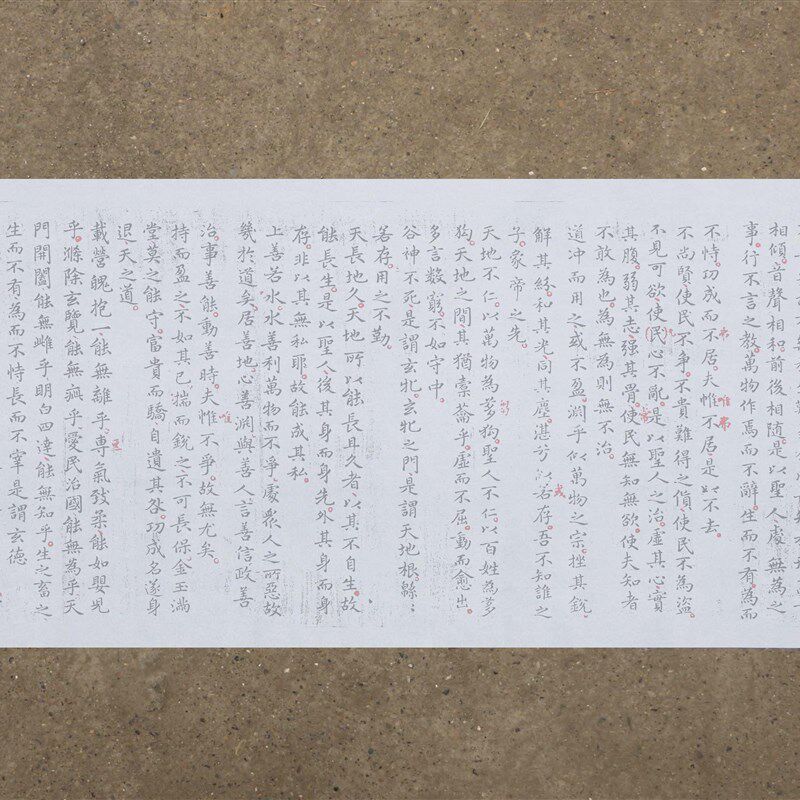 相傾音聲相和前後相隨是以聖人處無為之
事行不言之教萬物作焉而不辭生而不有為而
不恃功成而不居夫惟不居是以不去
不尚賢使民不爭不貴難得之貨使民不為盜
不見可欲使民心不亂是以聖人之治虛其心實
其腹弱其志強其骨使民無知無欲使夫知者
不敢為也為無為則無不治
道冲而用之或不盈淵乎似萬物之宗挫其銳
解其紛和其光同其塵湛兮似若存吾不知誰之
子象帝之先
天地不仁以萬物為芻狗聖人不仁以百姓為芻
狗天地之間其猶橐籥乎虛而不屈動而愈出
多言數窮不如守中
谷神不死是謂玄牝玄牝之門是謂天地根緜〻
若存用之不勤
天長地久天地所以能長且久者以其不自生故
能長生是以聖人後其身而身先外其身而身
存非以其無私耶故能成其私
上善若水水善利萬物而不爭處眾人之所惡故
幾於道矣居善地心善淵與善人言善信政善
治事善能動善時夫惟不爭故無尤矣
唯
持而盈之不如其已揣而銳之不可長保金玉滿
堂莫之能守富貴而驕自遺其咎功成名遂身
退天之道
載營魄抱一能無離乎專氣致柔能如嬰兒
乎滌除玄覽能無疵乎愛民治國能無為乎天
門開闔能無雌乎明白四達能無知乎生之畜之
生而不有為而不恃長而不宰是謂玄德